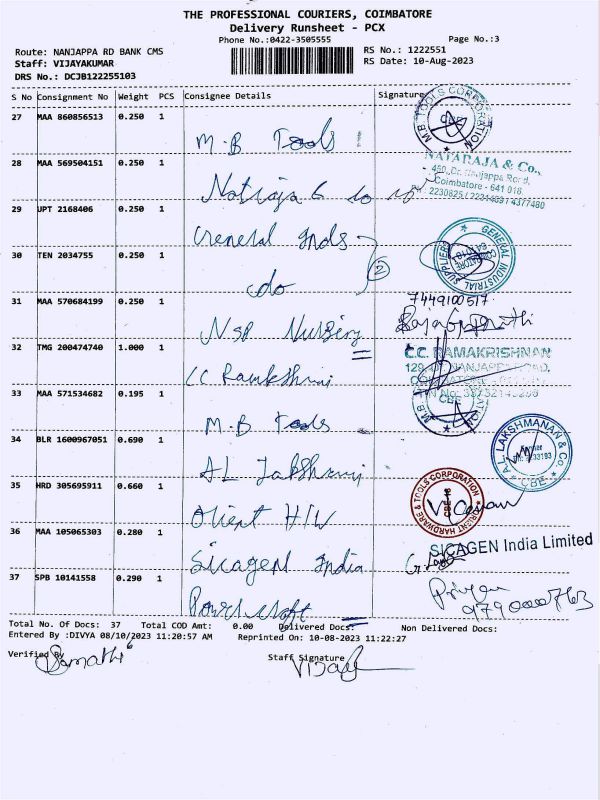 THE PROFESSIONAL COURIERS, COIMBATORE
Delivery Runsheet - PCX
Phone No.:0422-3505555
Page No.:3
Route: NANJAPPA RD BANK CMS
RS No.: 1222551
Staff: VIJAYAKUMAR
RS Date: 10-Aug-2023
DRS No.: DCJB122255103
S No Consignment No Weight PCS Consignee Details Signature
27 MAA 860856513 0.250 1
M.B Tools
M.B. TOOLS CORPORATION
CBE
28 MAA 569504151 0.250 1
NATARAJA & Co.,
450, Dr. Nanjappa Road,
Coimbatore - 641 018.
29 UPT 2168406 0.250 1
General Inds
GENERAL INDUSTRIAL SUPPLIERS
30 TEN 2034755 0.250 1
do
2
31 MAA 570684199 0.250 1
7449100517
NSP Nursery
32 TMG 200474740 1.000 1
C.C. RAMAKRISHNAN
33 MAA 571534682 0.195 1
M.B Tools
CBE
34 BLR 1600967051 0.690 1
AL Lakshmi
A.L. LAKSHMANAN & Co.
CBE
35 HRD 305695911 0.660 1
Orient H/W
ORIENT HARDWARE & TOOLS CORPORATION
CBE-18
36 MAA 105065303 0.280 1
Sicagen India
SICAGEN India Limited
37 SPB 10141558 0.290 1
Priya
9790000763
Total No. Of Docs: 37 Total COD Amt: 0.00 Delivered Docs: Non Delivered Docs:
Entered By :DIVYA 08/10/2023 11:20:57 AM Reprinted On: 10-08-2023 11:22:27
Verified By
Staff Signature